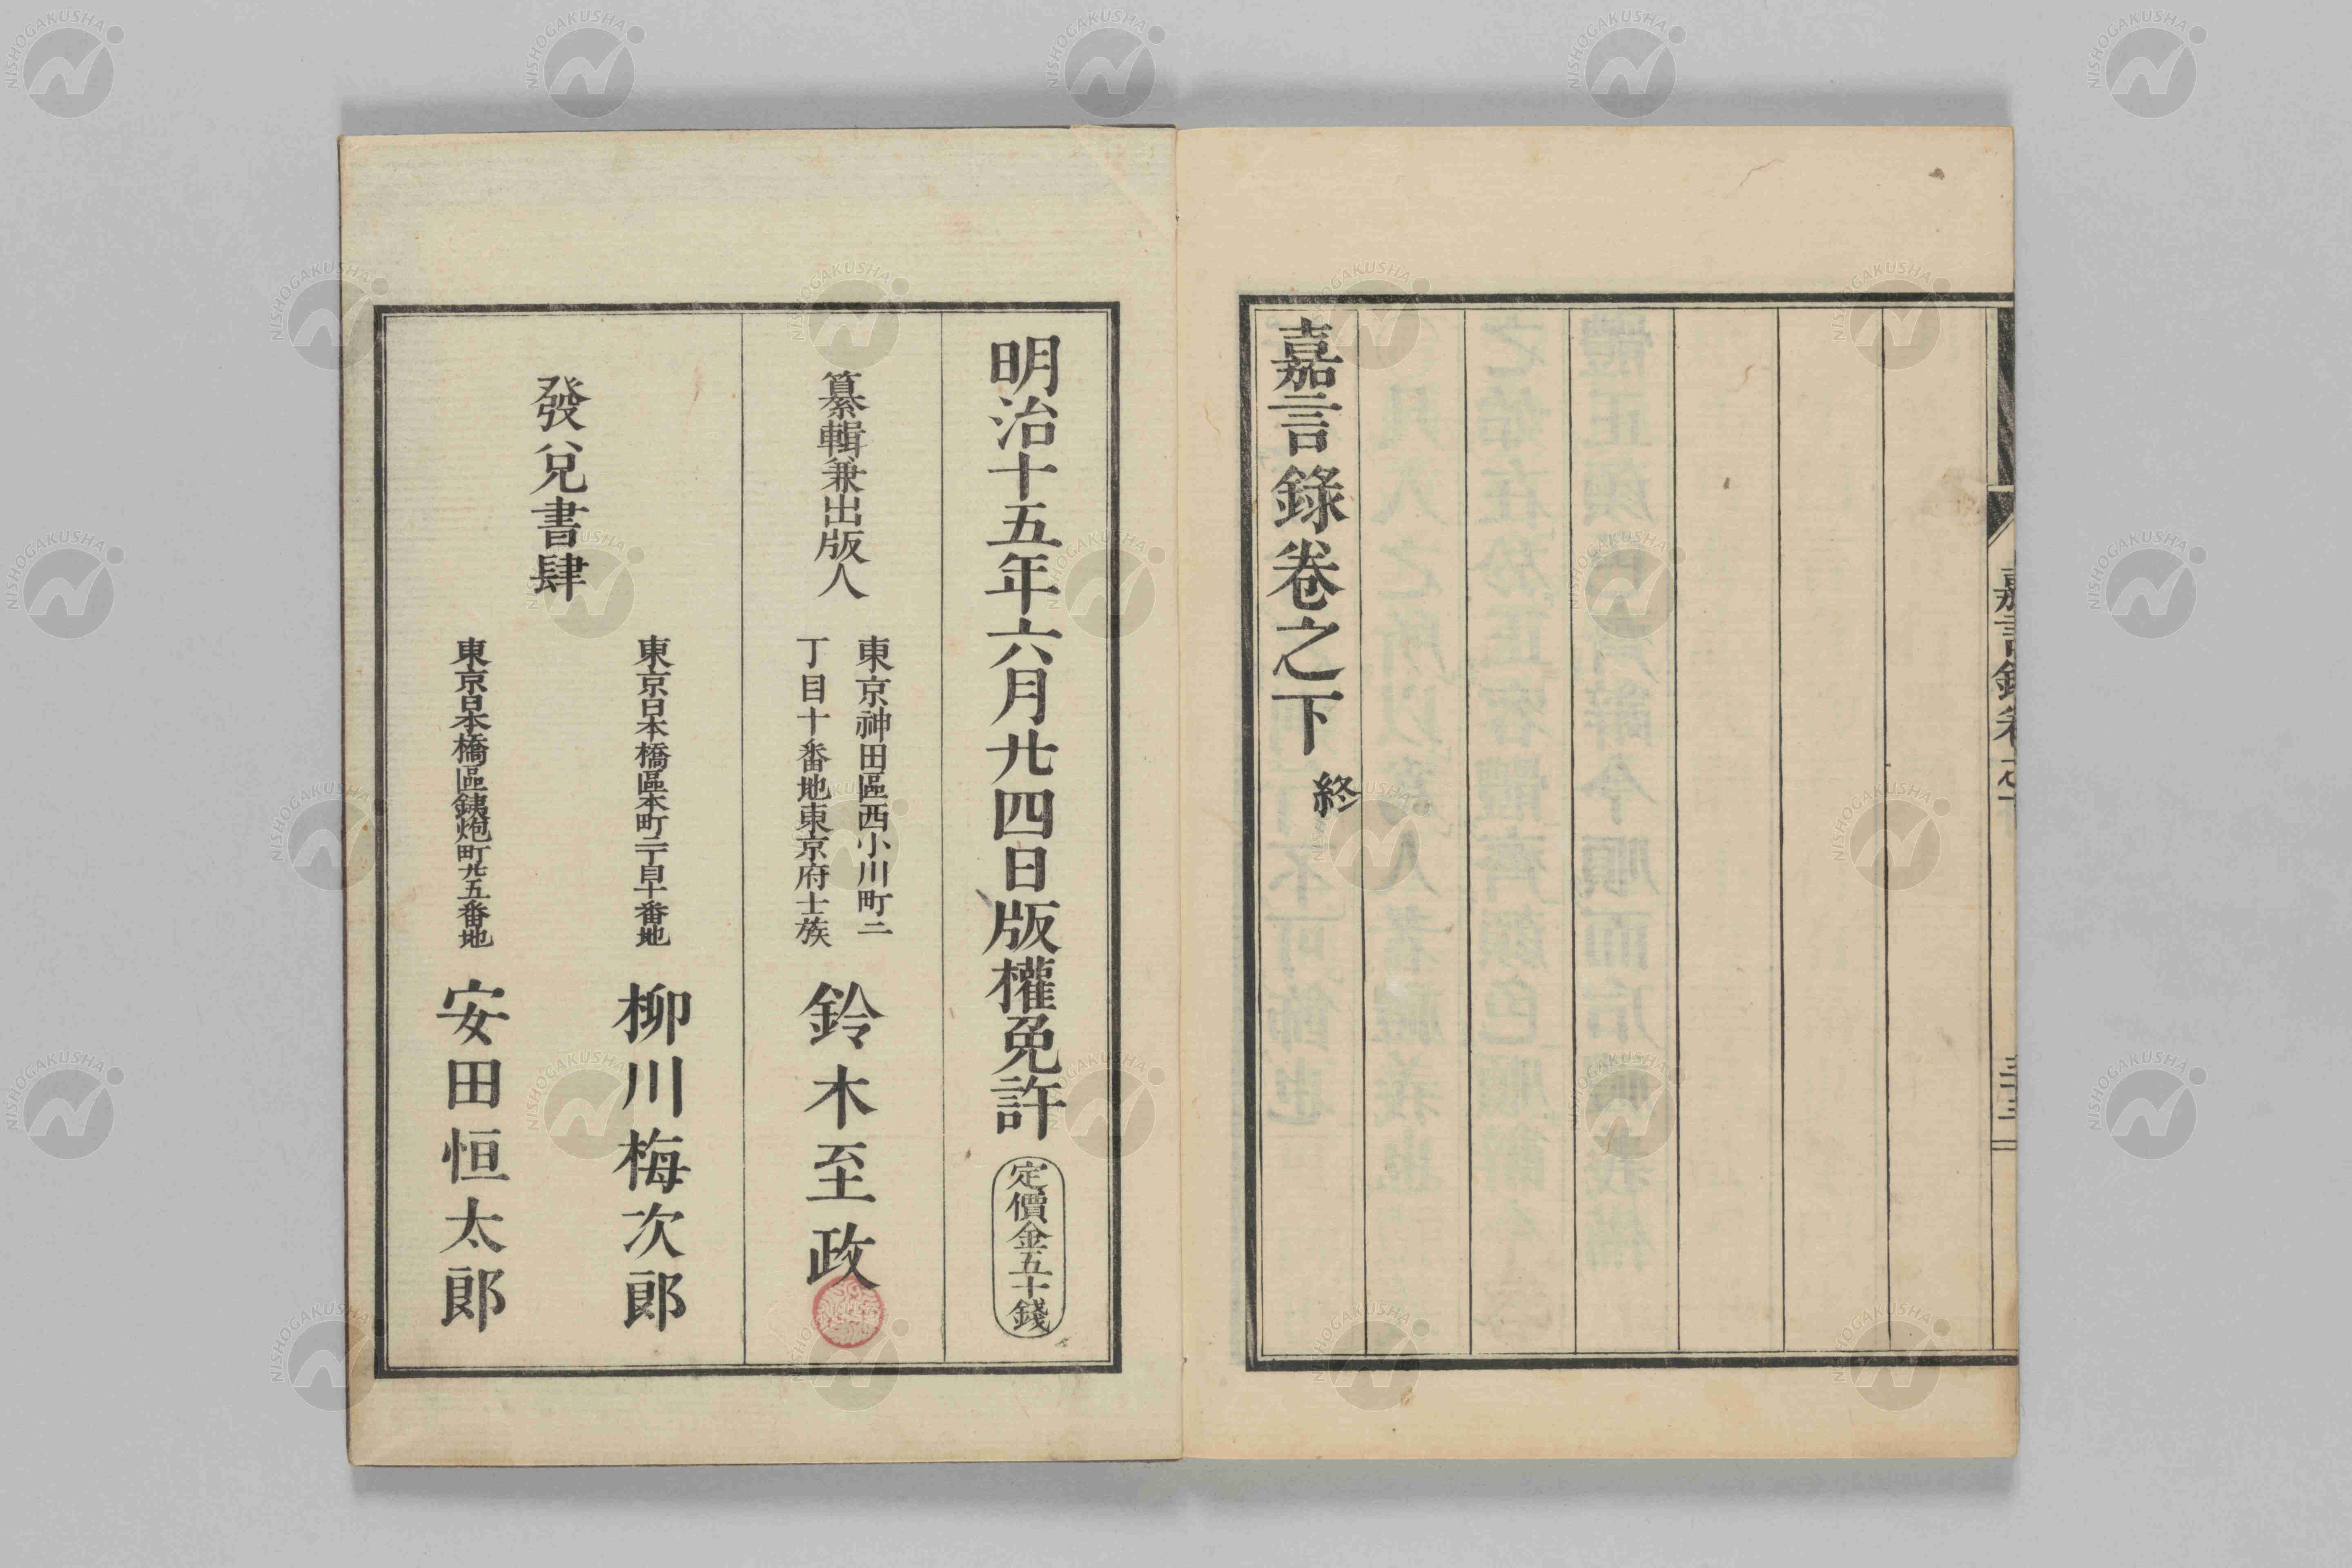 嘉言錄卷之下
三十三
嘉言錄卷之下 終
明治十五年六月廿四日版權免許 定價金五十錢
纂輯兼出版人
東京神田區西小川町二
丁目十番地東京府士族
鈴木至政
發兌書肆
東京日本橋區本町二丁目十番地 柳川梅次郎
東京日本橋區銕炮町廿五番地 安田恒太郎
NISHOGAKUSHA